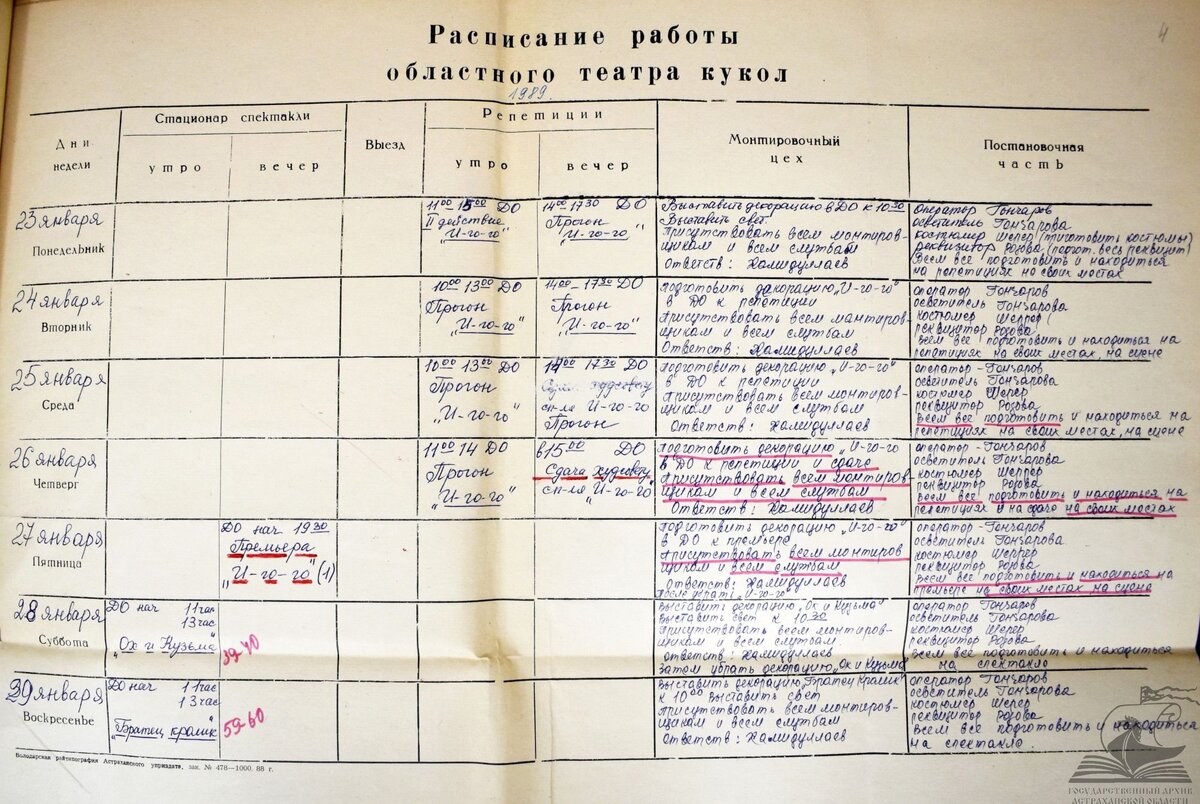 4
Расписание работы
областного театра кукол
1989.
Дни недели
Стационар спектакли
утро
вечер
Выезд
Репетиции
утро
вечер
Монтировочный цех
Постановочная часть
23 января
Понедельник
11⁰⁰ 15⁰⁰ ДО
II действие
"И-го-го"
14⁰⁰-17³⁰ ДО
Прогон
"И-го-го"
Выставить декорацию в ДО к 10³⁰
Выставить свет.
Присутствовать всем монтиров-
щикам и всем службам
Ответств: Хамидуллаев
оператор Гончаров
осветитель Гонзарова
костюмер Шерер (приготовить костюмы)
реквизитор Розова (подгот. весь реквизит)
Всем все подготовить и находиться
на репетициях на своих местах
24 января
Вторник
10⁰⁰ 13⁰⁰ ДО
Прогон
"И-го-го"
14⁰⁰-17³⁰ ДО
Прогон
"И-го-го"
подготовить декорацию "И-го-го"
в ДО к репетиции
присутствовать всем монтиров-
щикам и всем службам
Ответств: Хамидуллаев
оператор Гончаров
осветитель Гонзарова
костюмер Шеррер
реквизитор Розова
всем все подготовить и находиться на
репетициях на своих местах, на сцене
25 января
Среда
10⁰⁰ 13⁰⁰ ДО
Прогон
"И-го-го"
14⁰⁰ 17³⁰ ДО
худсовету
сп-ля И-го-го
Прогон
подготовить декорацию "И-го-го"
в ДО к репетиции
Присутствовать всем монтиров-
щикам и всем службам
Ответств: Хамидуллаев
оператор-Гончаров
осветитель Гонзарова
костюмер Шерер
реквизитор Розова
всем все подготовить и находиться на
репетициях на своих местах, на сцене
26 января
Четверг
11⁰⁰ 14 ДО
Прогон
"И-го-го"
в 15⁰⁰ ДО
Сдача худсовету
сп-ля "И-го-го"
подготовить декорацию "И-го-го
в ДО к репетиции и сдаче
Присутствовать всем монтиров
щикам и всем службам
Ответств: Хамидуллаев
оператор-Гончаров
осветитель Гонзарова
костюмер Шеррер
реквизитор Розова
всем все подготовить и находиться на
репетициях и на сдаче на своих местах
27 января
Пятница
ДО нач 19³⁰
Премьера
"И-го-го" (1)
подготовить декорацию "И-го-го"
в ДО к премьере
Присутствовать всем монтиров
щикам и всем службам
Ответств: Хамидуллаев
после убрать "И-го-го"
оператор-Гончаров
осветитель Гонзарова
костюмер Шеррер
реквизитор Розова
всем все подготовить и находиться на
премьере на своих местах на сцене
28 января
Суббота
ДО нач 11 час
13 час
"Ох и Кузьма"
39-40
выставить декорацию "Ох и Кузьма"
выставить свет к 10³⁰
присутствовать всем монтиров-
щикам и всем службам.
ответств: Хамидуллаев
Затем убрать декорацию "Ох и Кузьма"
оператор Гончаров
осветитель Гонзарова
костюмер Шерер
реквизитор Розова
всем все подготовить и находиться
на спектакле
29 января
Воскресенье
ДО нач 11 час
13 час
"Братец кролик"
59-60
выставить декорацию "Братец Кролик"
к 10⁰⁰ выставить свет
присутствовать всем монтиров-
щикам и всем службам
Ответств: Хамидуллаев
оператор Гончаров
осветитель Гонзарова
костюмер Шерер
реквизитор Розова
всем все подготовить и находиться
на спектакле
Володарская райтипография Астраханского уприздата, зак. № 478—1000. 88 г.
ГОСУДАРСТВЕННЫЙ АРХИВ
АСТРАХАНСКОЙ ОБЛАСТИ